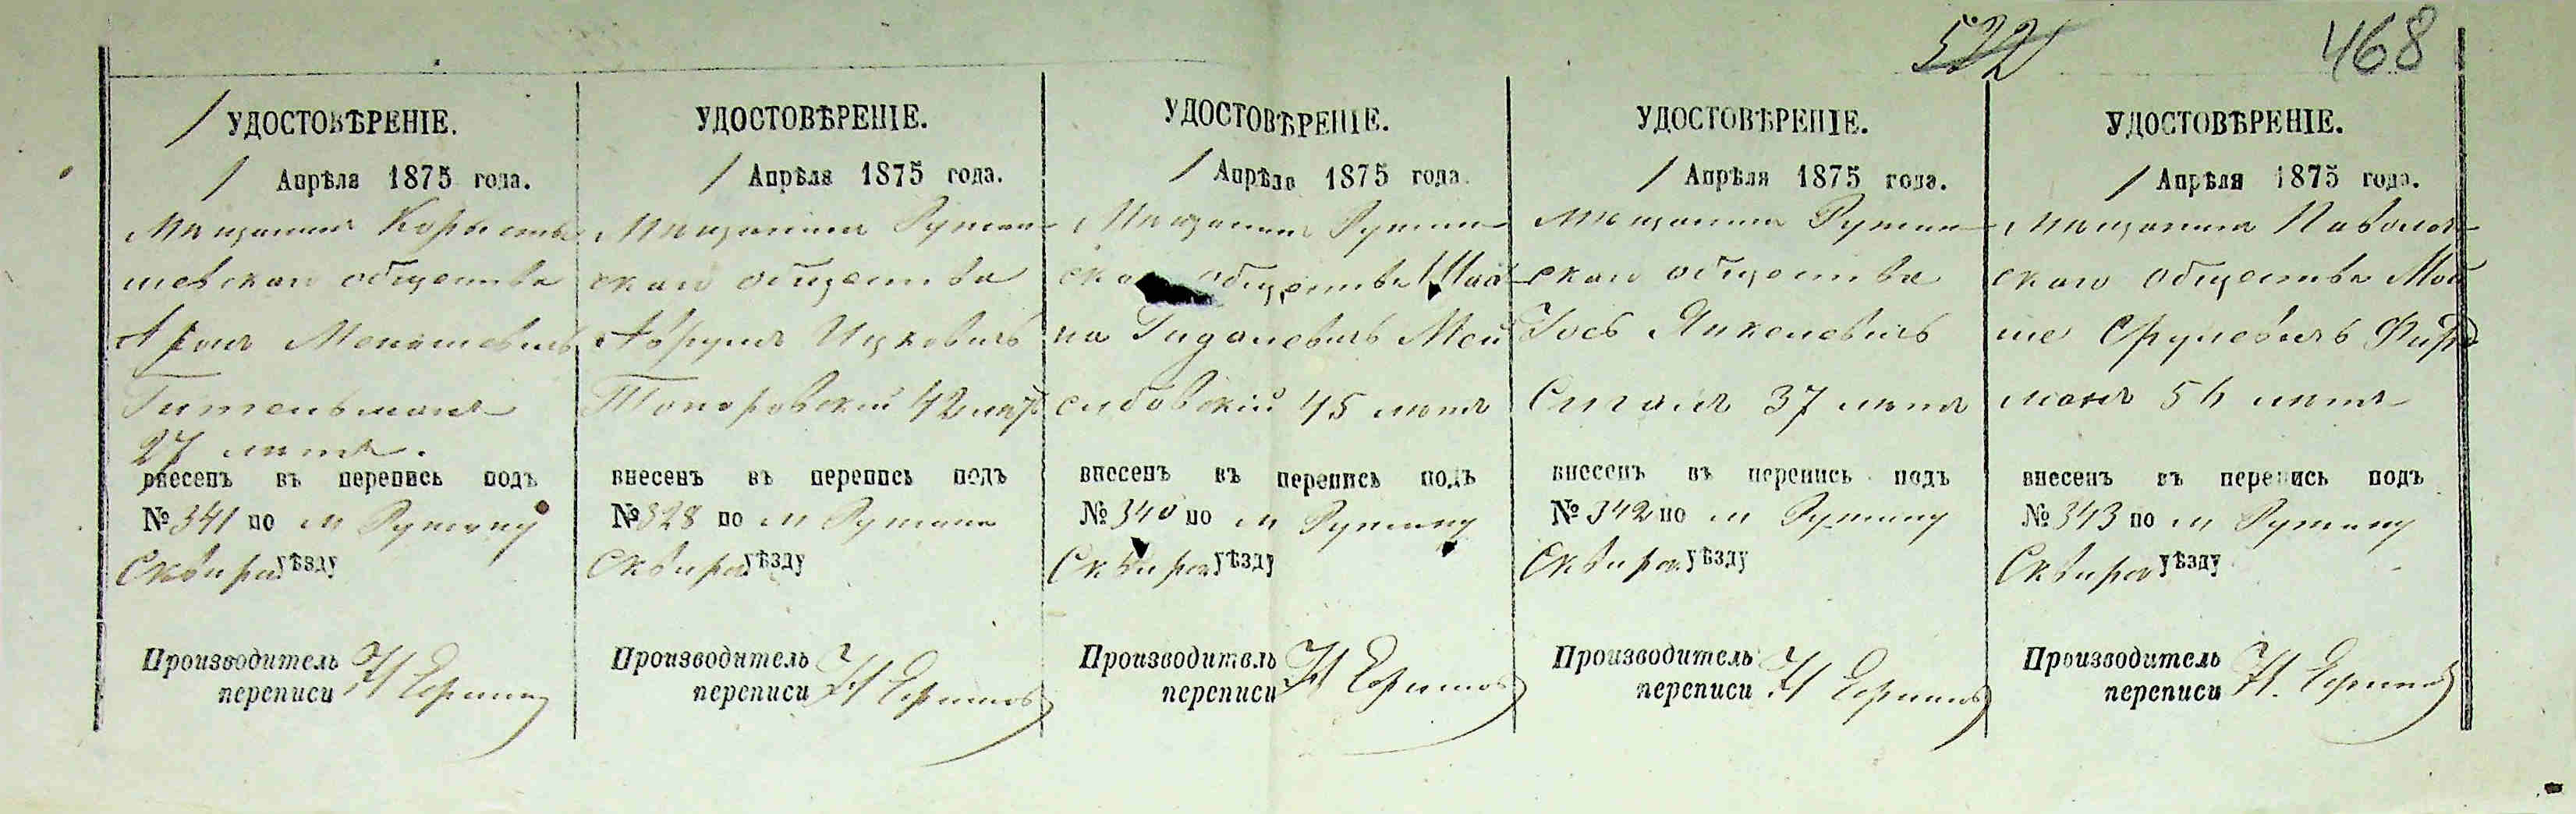 532
468
УДОСТОВѢРЕНІЕ.
1 Апрѣля 1875 года.
Мещанинъ Коросты-
шевскаго общества
Аронъ Меношевичъ
Гительманъ
27 летъ.
внесенъ въ перепись подъ
№ 341 по м Ружину
Сквирс. уѣзду
Производитель
переписи
УДОСТОВѢРЕНІЕ.
1 Апрѣля 1875 года.
Мещанинъ Ружин-
скаго общества
Аврумъ Ицковичъ
Топоровскій 42 летъ
внесенъ въ перепись подъ
№ 328 по м Ружину
Сквирс. уѣзду
Производитель
переписи
УДОСТОВѢРЕНІЕ.
1 Апрѣля 1875 года.
Мещанинъ Ружин-
общества
Гидалевичъ
45 летъ
внесенъ въ перепись подъ
№ 340 по м Ружину
Сквирс. уѣзду
Производитель
переписи
УДОСТОВѢРЕНІЕ.
1 Апрѣля 1875 года.
Мещанинъ Ружин-
скаго общества
Іось Янкелевичъ
Сигалъ 37 летъ
внесенъ въ перепись подъ
№ 342 по м Ружину
Сквирс. уѣзду
Производитель
переписи
УДОСТОВѢРЕНІЕ.
1 Апрѣля 1875 года.
Мещанинъ Паволоч-
скаго общества Мой-
ше Срулевичъ Фир-
манъ 54 летъ
внесенъ въ перепись подъ
№ 343 по м Ружину
Сквирс. уѣзду
Производитель
переписи